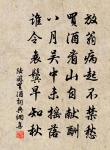 放翁病起不禁愁
買酒看山自獻酬
八月吳中未搖落
誰令衰鬢早知秋
陸游買酒詞典網集